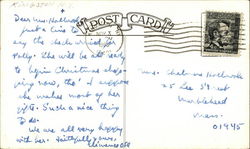 POST CARD
Dear Mrs Hallowell
just a line to
say the check arrived for
Polly. She will be all ready
to begin Christmas shop-
ping now, tho' I suppose
she makes most of her
gifts. Such a nice thing
to do.
We are all very happy
with her. Faithfully yours,
Mrs.
25
Marblehead
Mass.
01945